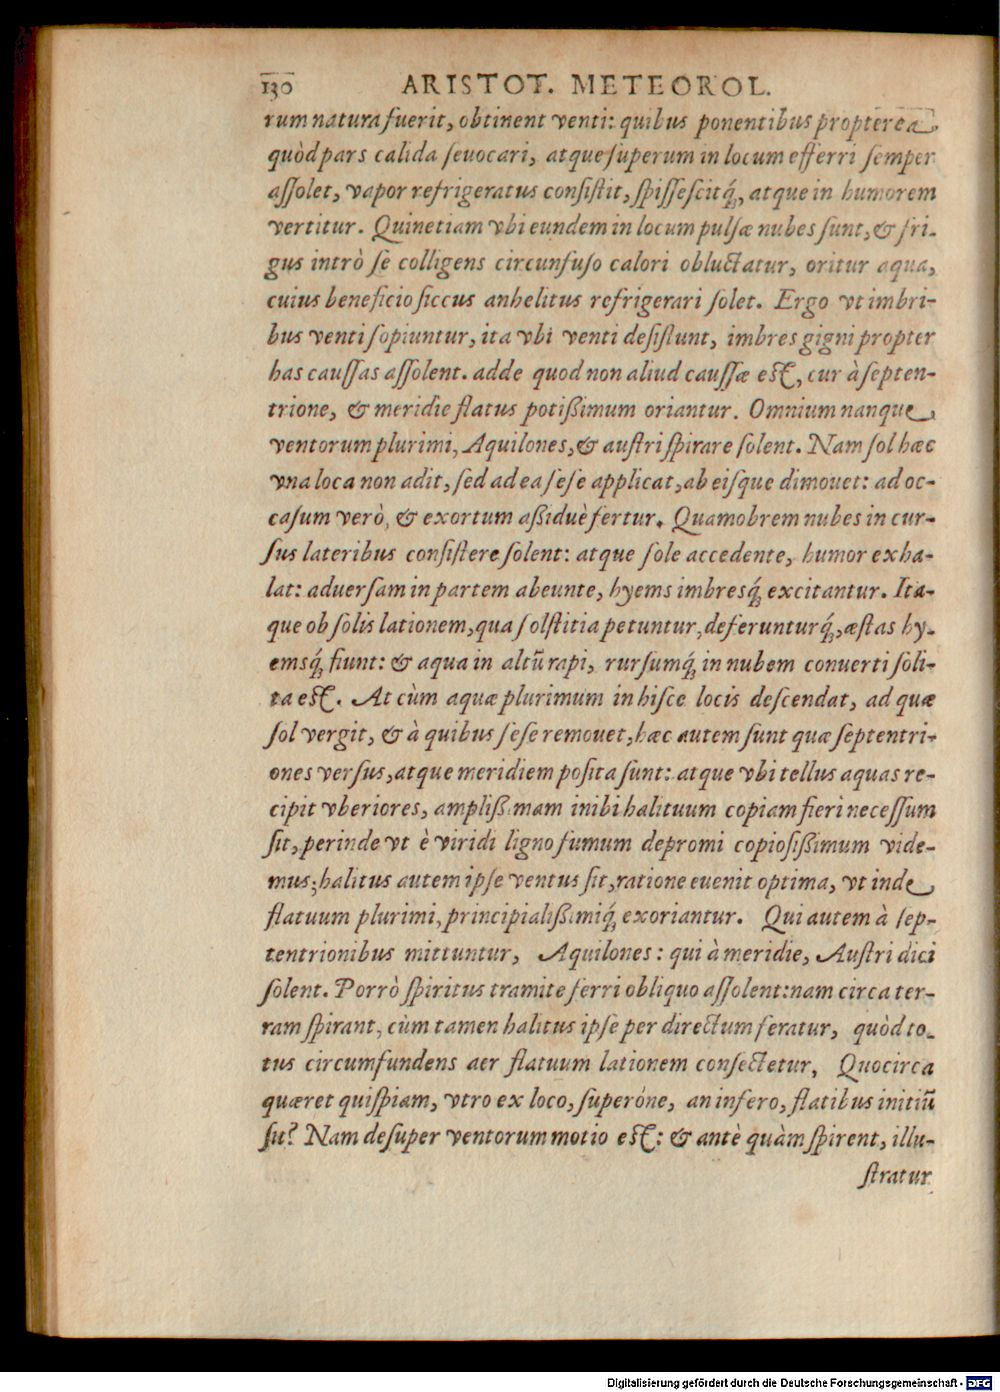 130 ARISTOT. METEOROL.
rum natura fuerit, obtinent venti: quibus ponentibus propterea
quòd pars calida seuocari, atque superum in locum efferri semper
assolet, vapor refrigeratus consistit, spissescitq́;, atque in humorem
vertitur. Quinetiam vbi eundem in locum pulsæ nubes sunt, & fri-
gus intrò se colligens circunfuso calori obluctatur, oritur aqua,
cuius beneficio siccus anhelitus refrigerari solet. Ergo vt imbri-
bus venti sopiuntur, ita vbi venti desistunt, imbres gigni propter
has caussas assolent. adde quod non aliud caussæ est, cur à septen-
trione, & meridie flatus potißimum oriantur. Omnium nanque
ventorum plurimi, Aquilones, & austri spirare solent. Nam sol hæc
vna loca non adit, sed ad ea sese applicat, ab eisque dimouet: ad oc-
casum verò, & exortum aßiduè fertur. Quamobrem nubes in cur-
sus lateribus consistere solent: atque sole accedente, humor exha-
lat: aduersam in partem abeunte, hyems imbresq́; excitantur. Ita-
que ob solis lationem, qua solstitia petuntur, deferunturq́;, æstas hy-
emsq́; fiunt: & aqua in altũ rapi, rursumq́; in nubem conuerti soli-
ta est. At cùm aquæ plurimum in hisce locis descendat, ad quæ
sol vergit, & à quibus sese remouet, hæc autem sunt quæ septentri-
ones versus, atque meridiem posita sunt: atque vbi tellus aquas re-
cipit vberiores, amplißimam inibi halituum copiam fieri necessum
sit, perinde vt è viridi ligno fumum depromi copiosißimum vide-
mus; halitus autem ipse ventus sit, ratione euenit optima, vt inde
flatuum plurimi, principialißimiq́; exoriantur. Qui autem à sep-
tentrionibus mittuntur, Aquilones: qui à meridie, Austri dici
solent. Porrò spiritus tramite ferri obliquo assolent: nam circa ter-
ram spirant, cùm tamen halitus ipse per directum feratur, quòd to-
tus circumfundens aer flatuum lationem consectetur, Quocirca
quæret quispiam, vtro ex loco, superóne, an infero, flatibus initiũ
su? Nam desuper ventorum motio est: & antè quàm spirent, illu-
stratur
Digitalisierung gefördert durch die Deutsche Forschungsgemeinschaft - DFG